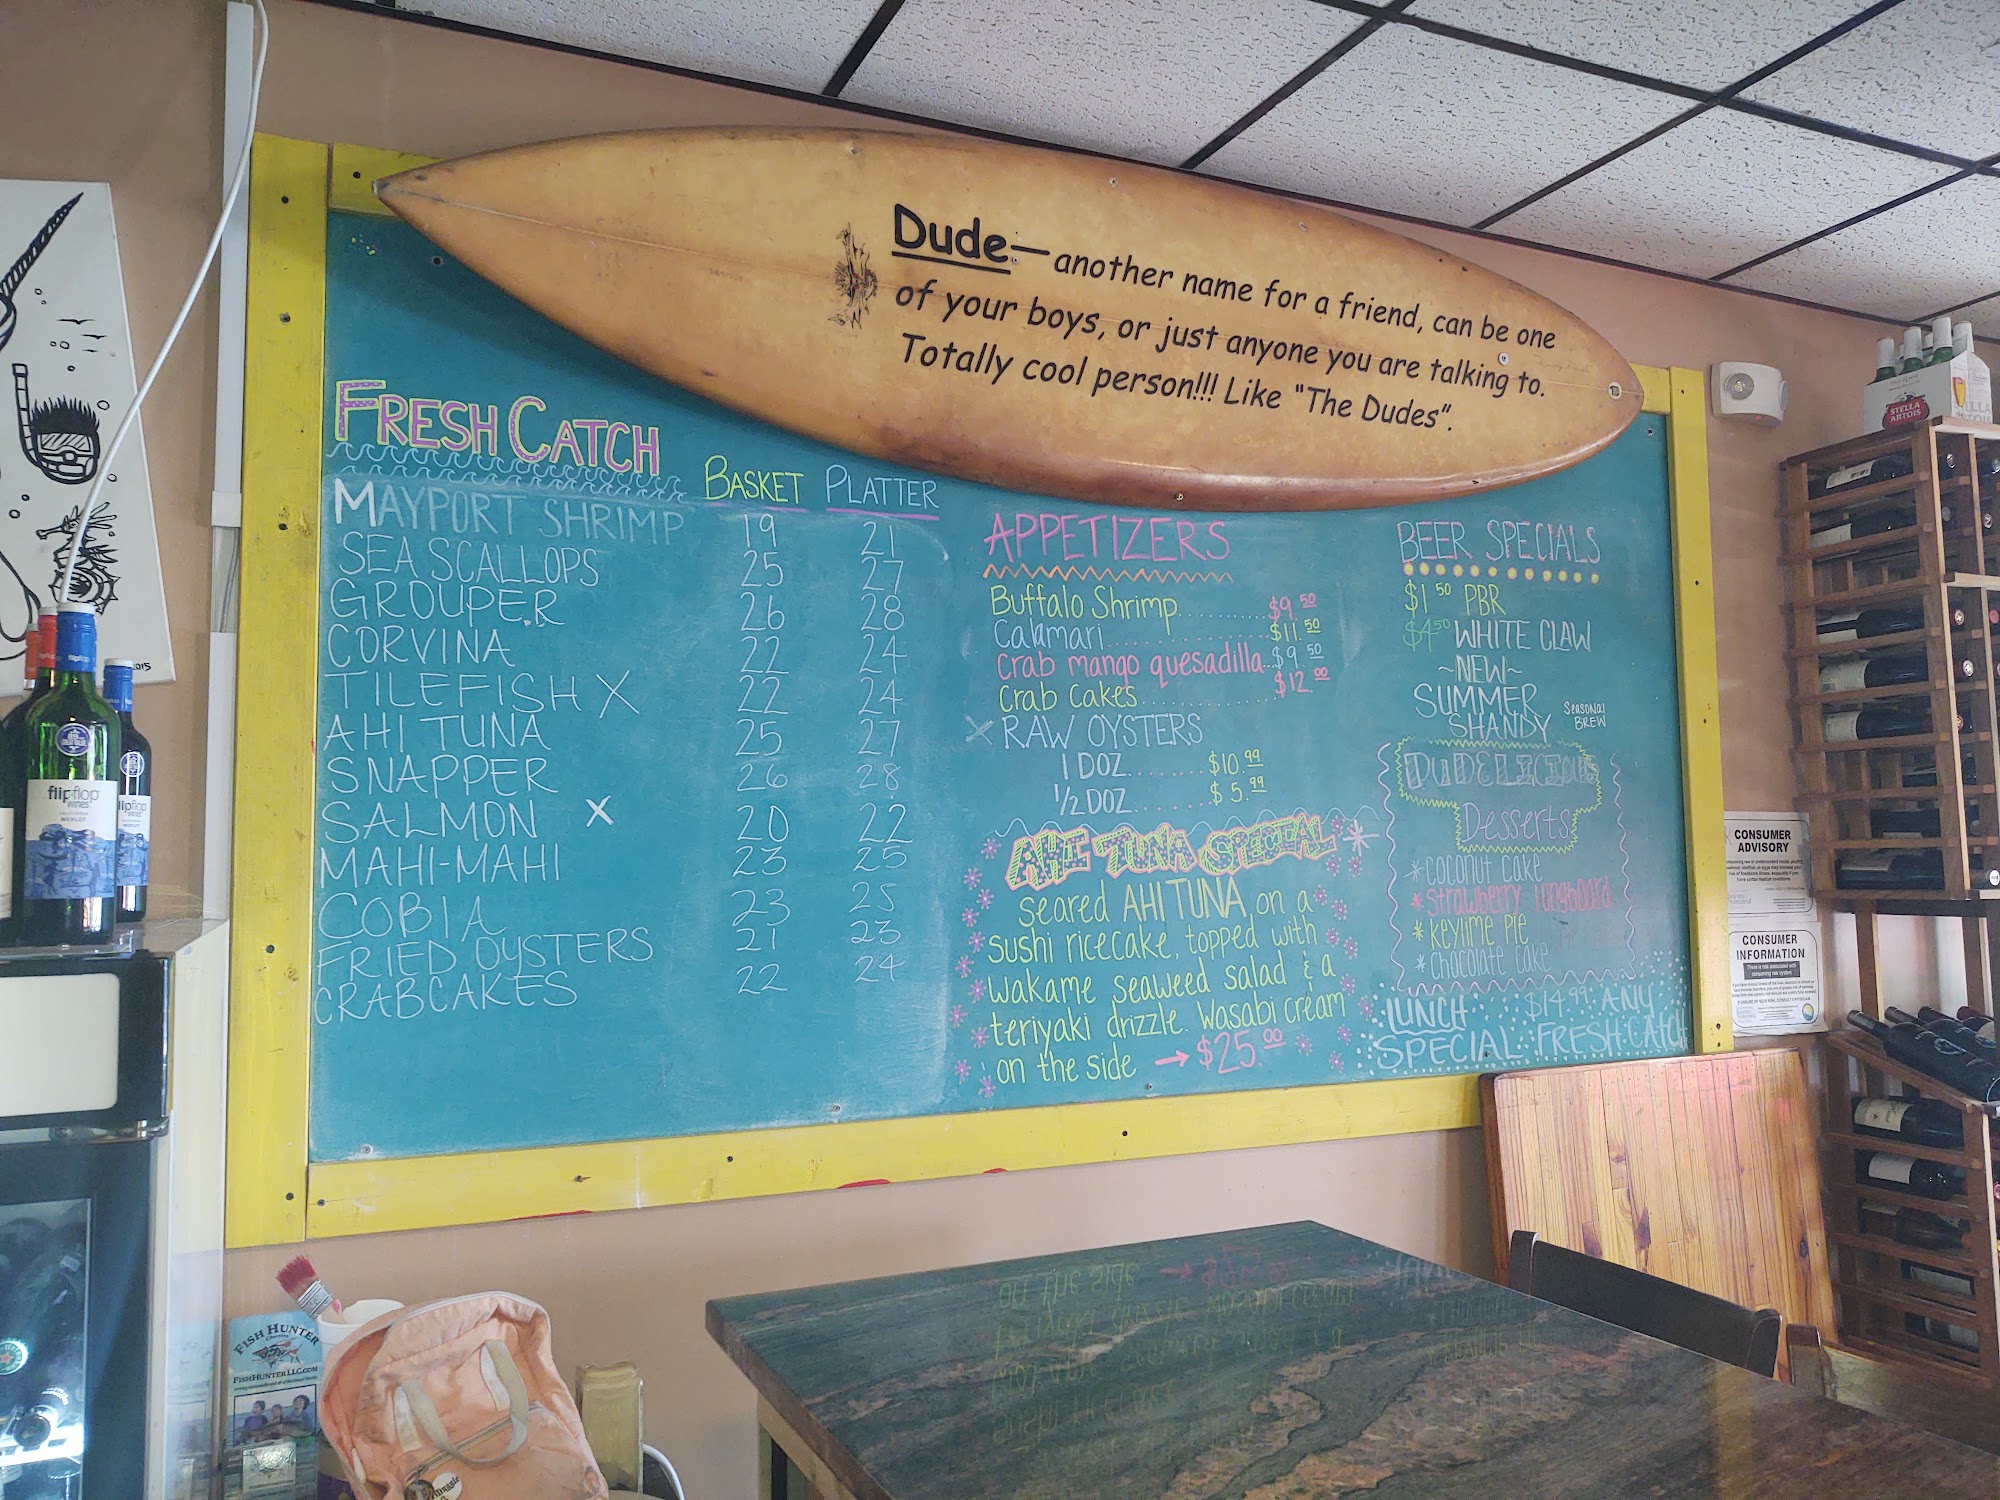 Dude—another name for a friend, can be one
of your boys, or just anyone you are talking to.
Totally cool person!!! Like "The Dudes".
FRESH CATCH
BASKET PLATTER
MAYPORT SHRIMP 19 21
SEA SCALLOPS 25 27
GROUPER 26 28
CORVINA 22 24
TILEFISH X 22 24
AHI TUNA 25 27
SNAPPER 26 28
SALMON X 20 22
MAHI-MAHI 23 25
COBIA 23 25
FRIED OYSTERS 21 23
CRABCAKES 22 24
APPETIZERS
Buffalo Shrimp........$9.50
Calamari..............$11.50
Crab mango quesadilla...$9.50
Crab Cakes............$12.00
X RAW OYSTERS
1 DOZ........$10.99
1/2 DOZ.......$5.99
AHI TUNA SPECIAL
seared AHI TUNA on a
sushi ricecake, topped with
wakame seaweed salad & a
teriyaki drizzle. Wasabi cream
on the side → $25.00
BEER SPECIALS
$1.50 PBR
$4.50 WHITE CLAW
~NEW~
SUMMER
SHANDY
SEASONAL
BREW
DUDELICIOUS
Desserts
*coconut cake
*strawberry longboard
*keylime pie
*chocolate cake
LUNCH $14.99 ANY
SPECIAL FRESH CATCH
STELLA
ARTOIS
CONSUMER
ADVISORY
CONSUMER
INFORMATION
2015
flipflop
wines
CALIFORNIA
MERLOT
FISH HUNTER
FISHHUNTERLLC.COM